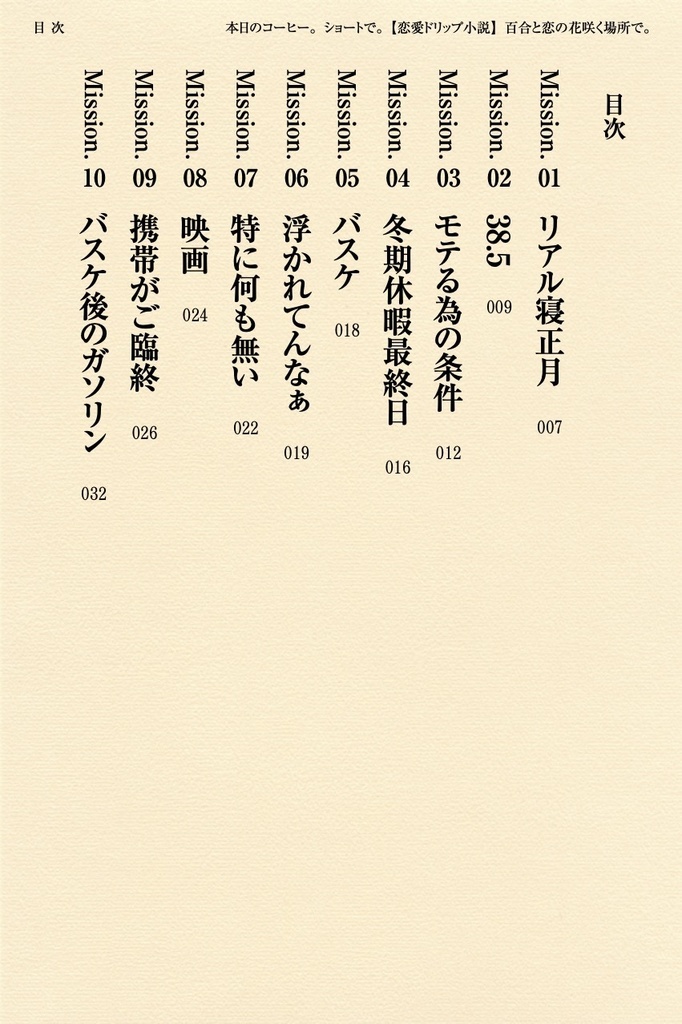 目次
本日のコーヒー。ショートで。【恋愛ドリップ小説】 百合と恋の花咲く場所で。
目次
Mission. 01 リアル寝正月 007
Mission. 02 38.5 009
Mission. 03 モテる為の条件 012
Mission. 04 冬期休暇最終日 016
Mission. 05 バスケ 018
Mission. 06 浮かれてんなぁ 019
Mission. 07 特に何も無い 022
Mission. 08 映画 024
Mission. 09 携帯がご臨終 026
Mission. 10 バスケ後のガソリン 032